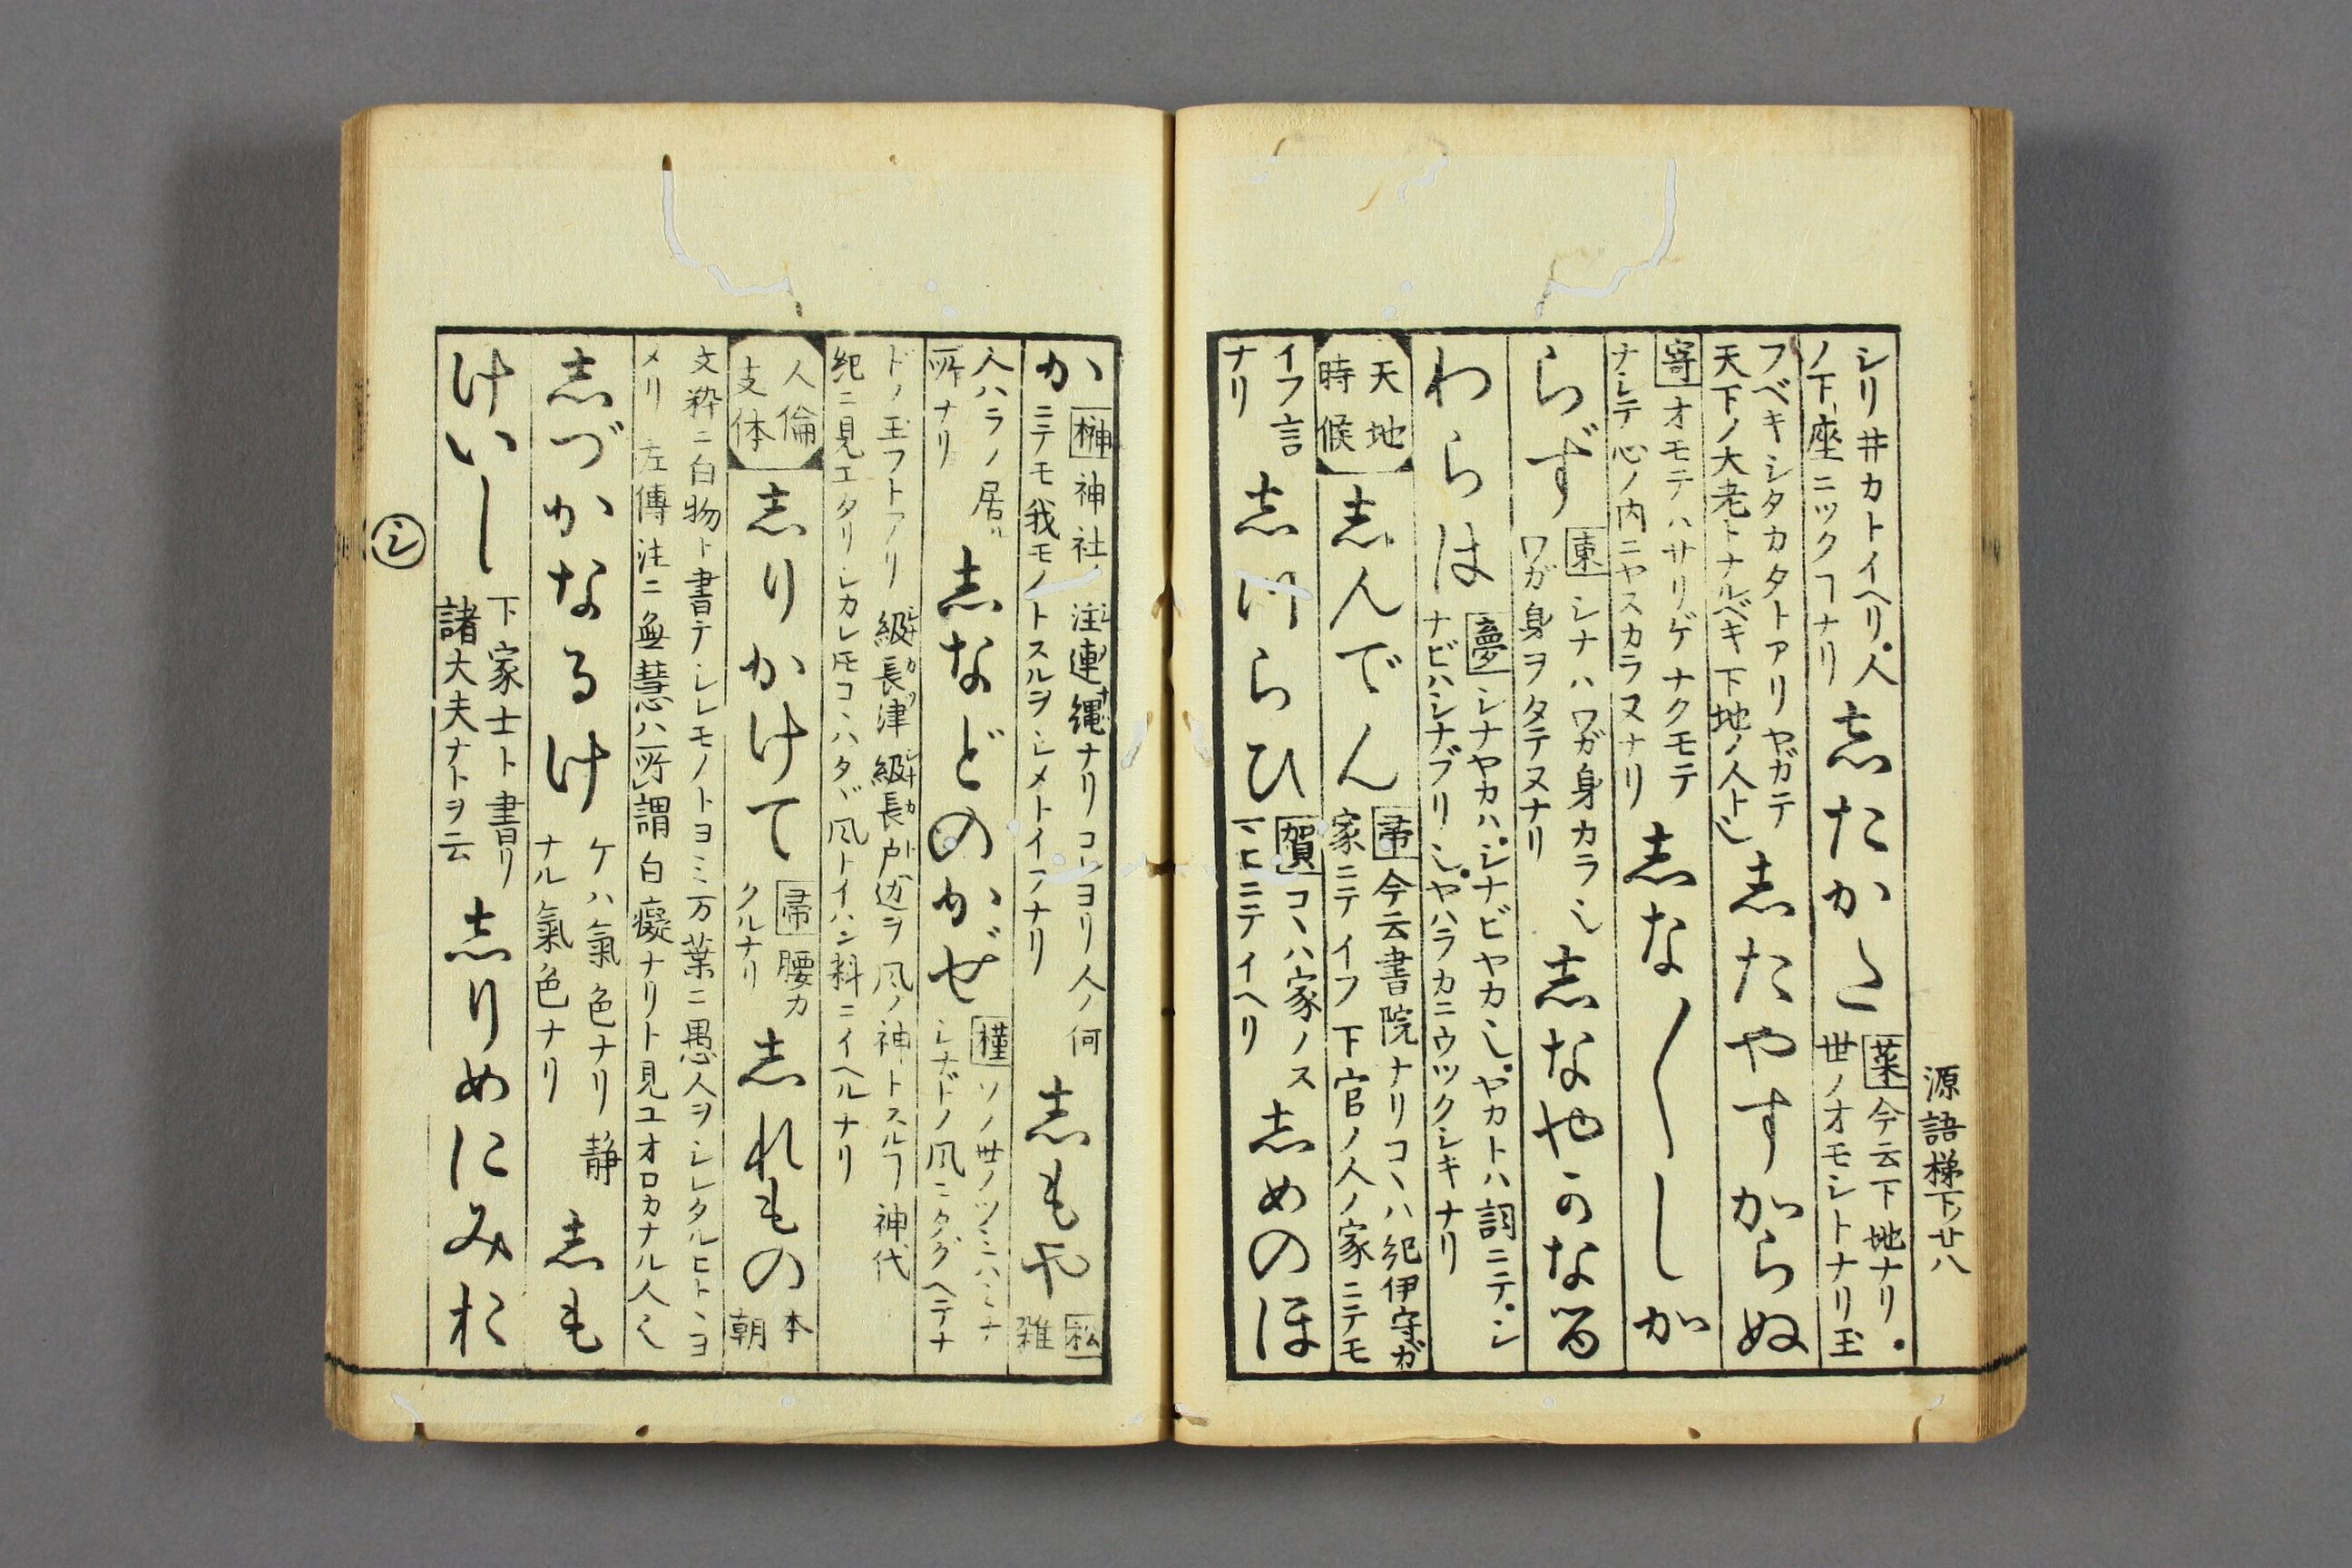 源語梯下ノ廿八
シリ井カトイヘリ。人
ノ下座ニツクヿナリ
志たかた
菜 今云下地ナリ。
世ノオモシトナリ玉
フベキシタカタトアリヤガテ
天下ノ大老トナルベキ下地ノ人ト也
志たやすがらぬ
寄 オモテハサリゲナクモテ
ナシテ心ノ内ニヤスカラヌナリ
志な〱しが
らず
東 シナハワガ身カラ也
ワガ身ヲタテヌナリ
志なやかなる
わらは
夢 シナヤカハ。シナビヤカ也。ヤカトハ詞ニテ。シ
ナビハシナブリ也。ヤハラカニウツクシキナリ
天地
時候
志んでん
帚 今云書院ナリコヽハ紀伊守ガ
家ニテイフ下官ノ人ノ家ニテモ
イフ言
ナリ
志つらひ
賀 コヽハ家ノス
ニテイヘリ
志めのほ
か
榊 神社ノ注連縄ナリコレヨリ人ノ何
ニテモ我モノトスルヲシメトイフナリ
志もや
松
雑
人ハラノ居ル
所ナリ
志などのかぜ
槿 ソノ世ノツミハミナ
シナドノ風ニタグヘテナ
ドノ玉フトアリ 級長津級長戸辺ヲ風ノ神トスルヿ神代
紀ニ見エタリシカレ𪜈コヽハタヾ風トイハン料ニイヘルナリ
人倫
支体
志りかけて
帚 腰カ
クルナリ
志れもの
本
朝
文粋ニ白物ト書テシレモノトヨミ万葉ニ愚人ヲシレタルヒトヽヨ
メリ 左傳注ニ無慧ハ所謂白癡ナリト見ユオロカナル人也
志づかなるけ
ケハ氣色ナリ静
ナル氣色ナリ
志も
けいし
下家士ト書リ
諸大夫ナトヲ云
志りめにみお
シ